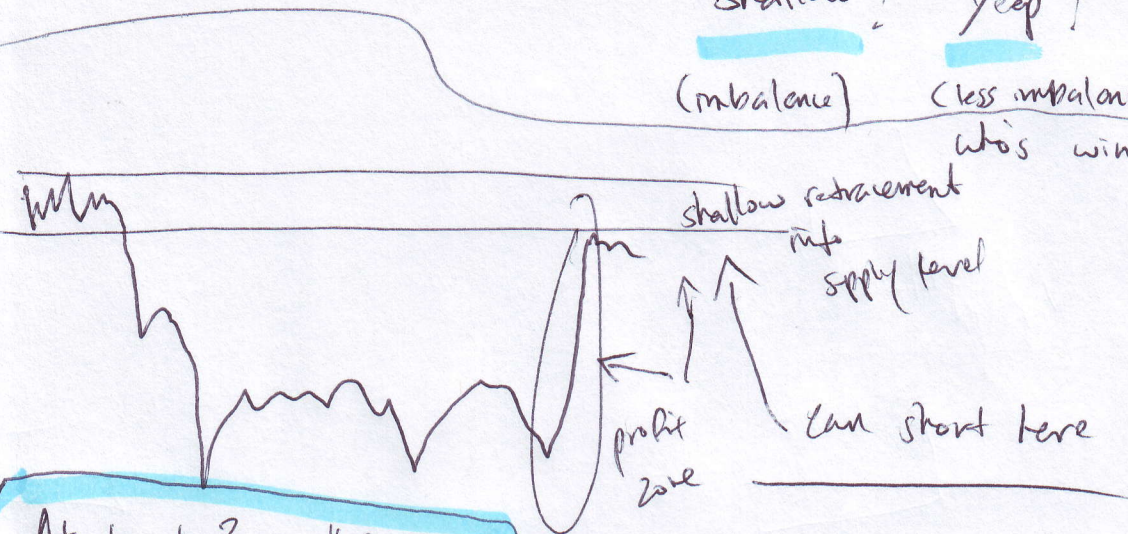 shallow? yeep!
(imbalance) (less imbalan
who's win
shallow retracement
into
supply level
profit
zone
can short here